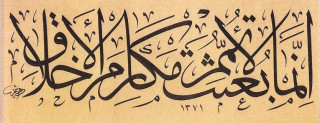 إنما بعثت لأتمم مكارم الأخلاق
١٣٧١